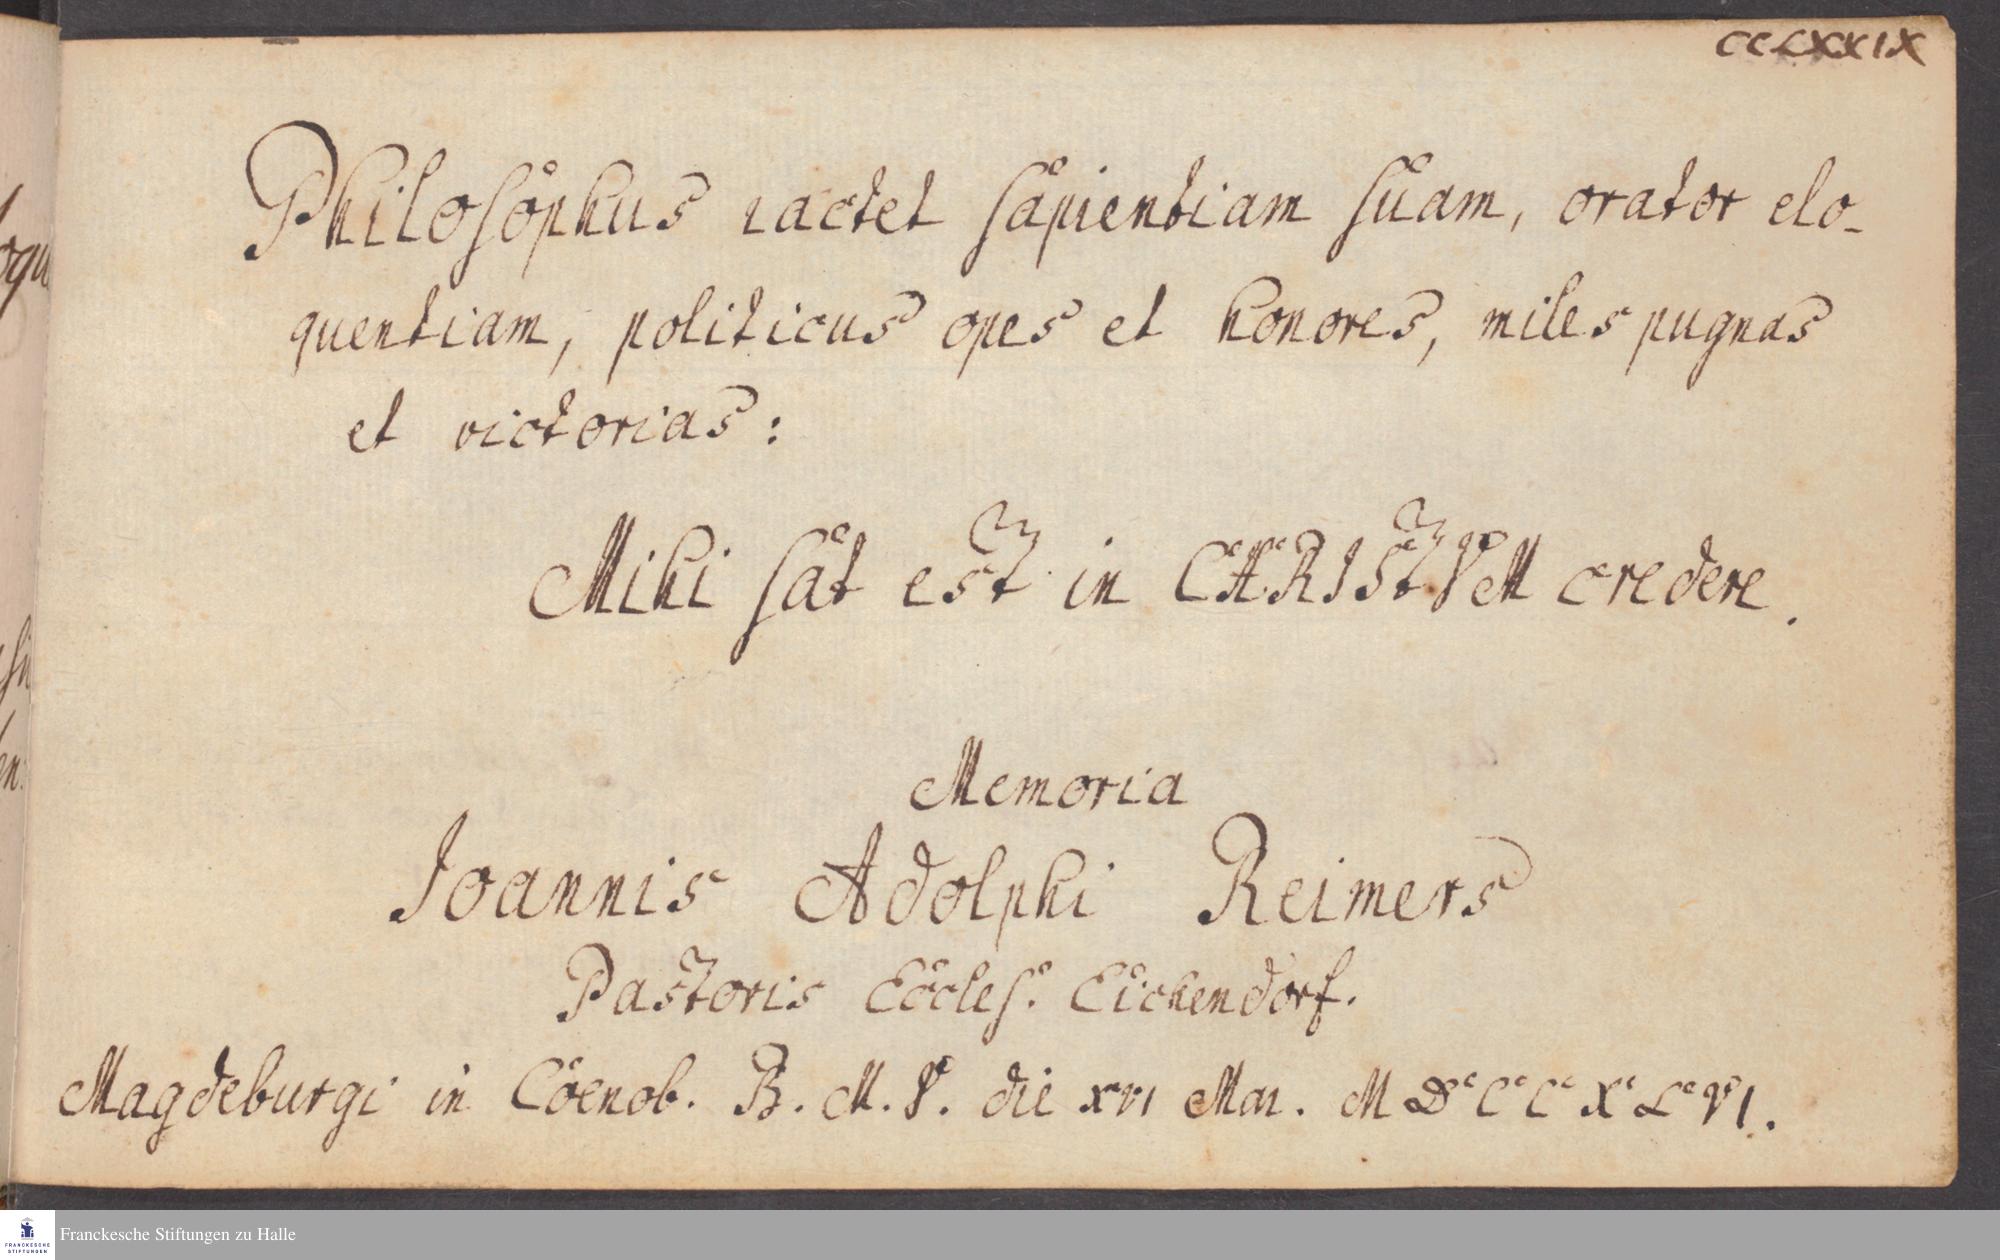 CCLXXIX
Philosophus iactet sapientiam suam, orator elo-
quentiam, politicus opes et honores, miles pugnas
et victorias:
Mihi sat est in CHRISTVM credere.
Memoria
Ioannis Adolphi Reimers
Pastoris Eccles. Eichendorf.
Magdeburgi in Coenob. B. M. V. die XVI Mai. MDCCXLVI.
Franckesche Stiftungen zu Halle
FRANCKESCHE
STIFTUNGEN